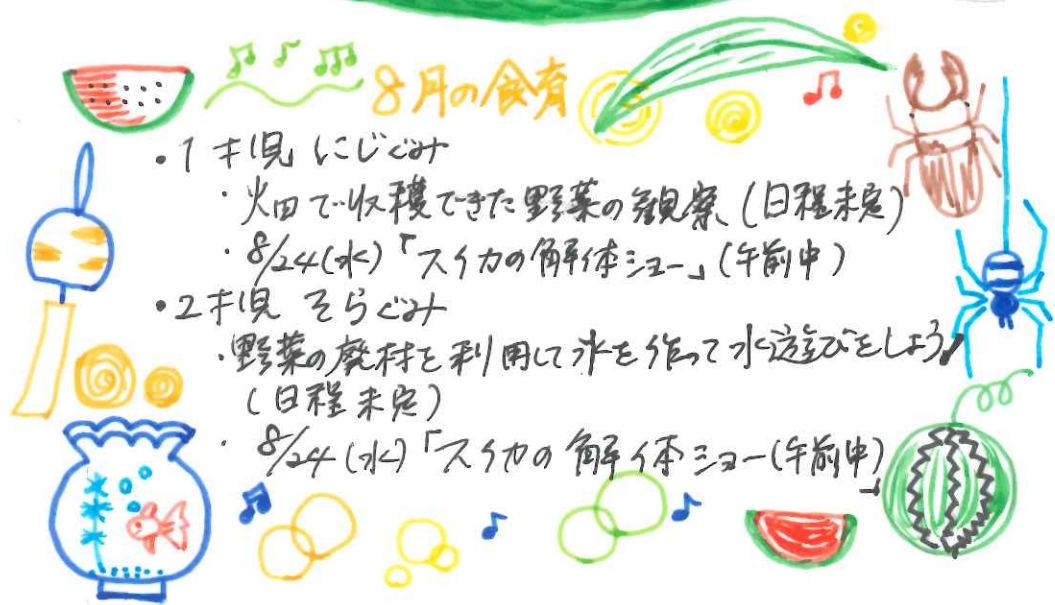 8月の食育
・1才児 にじぐみ
・畑で収穫できた野菜の観察(日程未定)
・8/24(水)「スイカの解体ショー」(午前中)
・2才児 そらぐみ
・野菜の廃材を利用して氷を作って水遊びをしよう!
(日程未定)
・8/24(水)「スイカの解体ショー(午前中)」